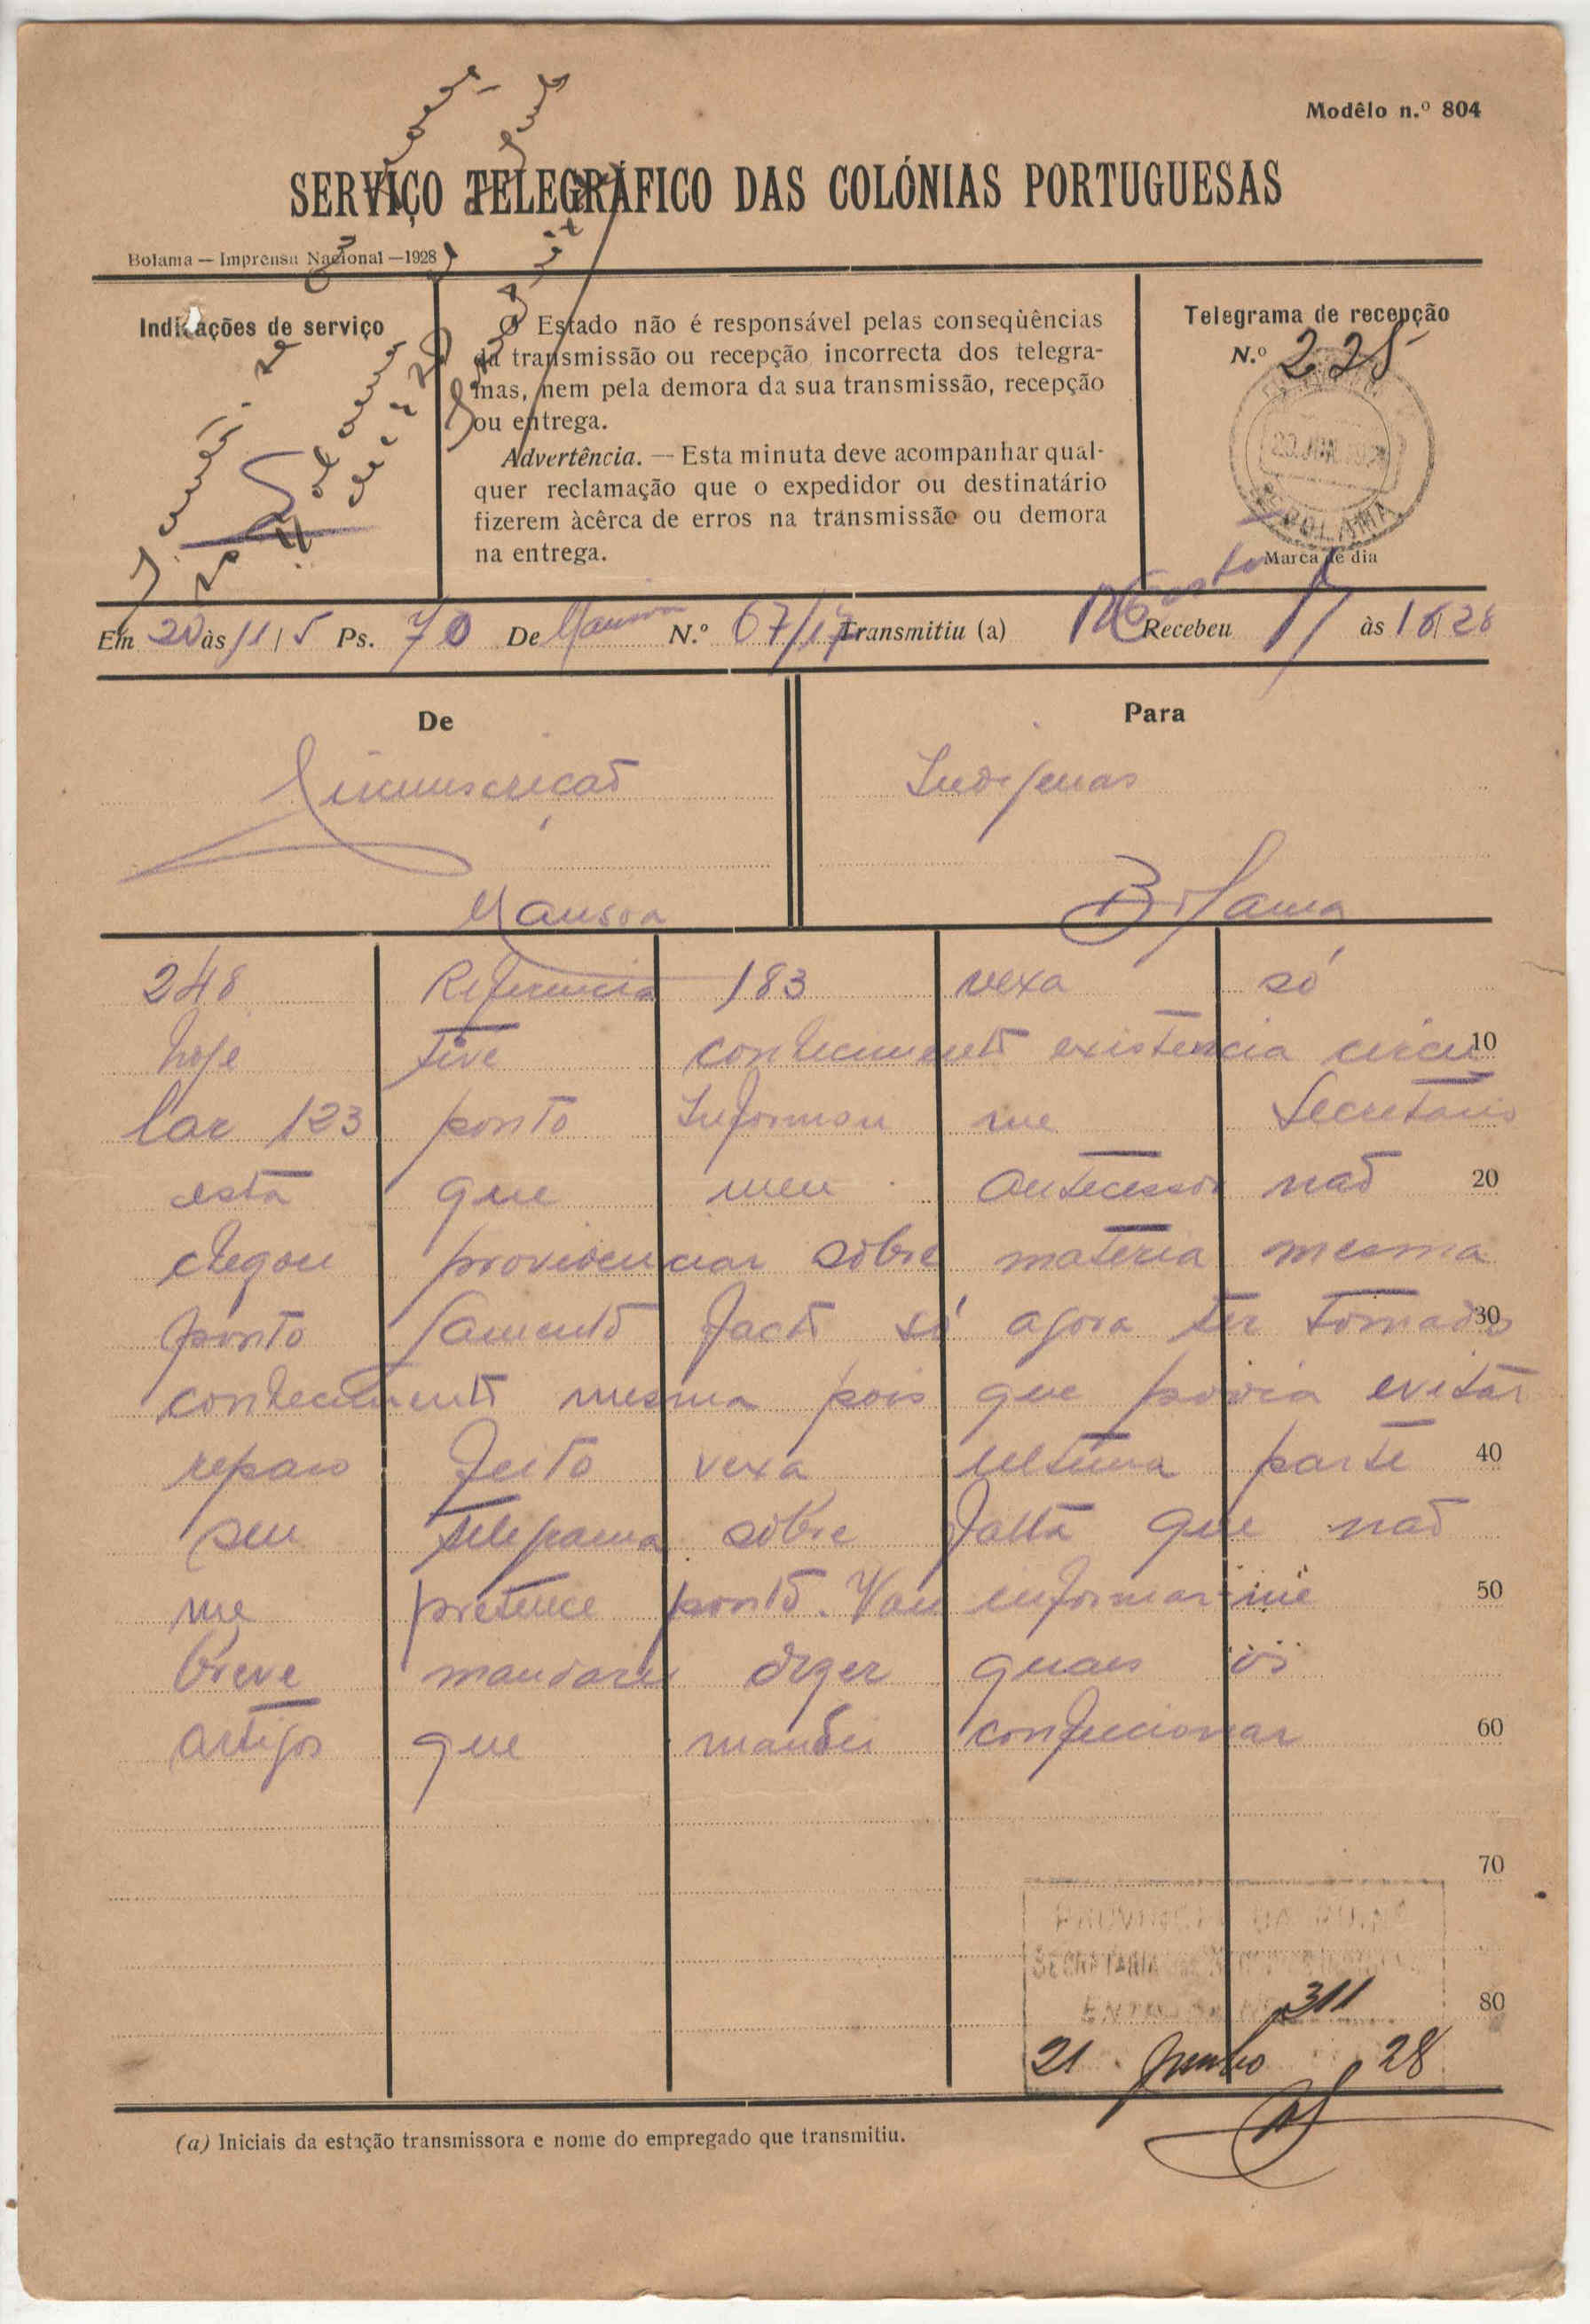 Modêlo n.º 804
SERVIÇO TELEGRÁFICO DAS COLÓNIAS PORTUGUESAS
Bolama — Imprensa Nacional — 1928
Indicações de serviço
O Estado não é responsável pelas conseqùências
da transmissão ou recepção incorrecta dos telegra-
mas, nem pela demora da sua transmissão, recepção
ou entrega.
Advertência. — Esta minuta deve acompanhar qual-
quer reclamação que o expedidor ou destinatário
fizerem àcêrca de erros na transmissão ou demora
na entrega.
Telegrama de recepção
N.º 225
BOLAMA
Marca de dia
Em 20 às 11/5 Ps. 70 De Mansoa N.º 67/17 Transmitiu (a) Recebeu às 16/28
De
Para
Circunscrição
Indigenas
Mansoa
Bolama
248 Referencia 183 vexa só
hoje tive conhecimento existencia circu 10
lar 123 ponto Informou me Secretario
esta que meu antecessor não 20
chegou providenciar sobre materia mesma
ponto lamento facto só agora ter tomado 30
conhecimento mesma pois que podia evitar
reparo feito vexa ultima parte 40
seu telegrama sobre falta que não
me pretence ponto. Vou informar-me 50
breve mandarei dizer quais os
artigos que mandei confeccionar 60
70
PROVINCIA DA GUINÉ
SECRETARIA
ENTRADA N.º 311
80
21 Junho 28
(a) Iniciais da estação transmissora e nome do empregado que transmitiu.